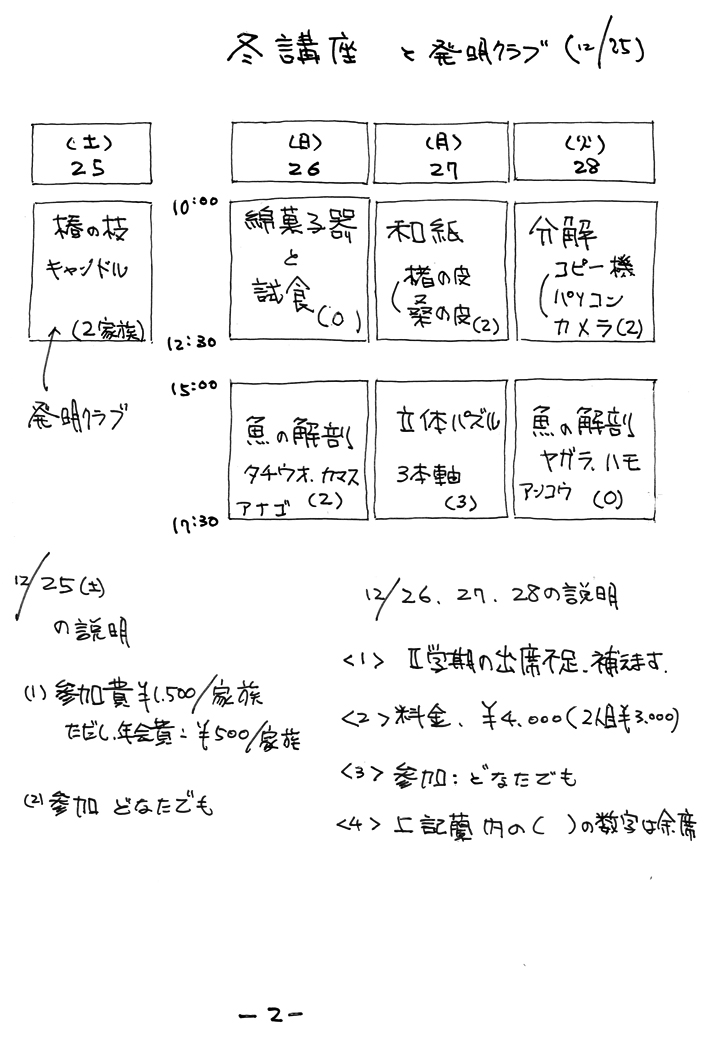 冬講座 と発明クラブ(12/25)
(土)
25
(日)
26
(月)
27
(火)
28
椿の枝
キャンドル
(2家族)
発明クラブ
10:00
12:30
綿菓子器
と
試食
(0)
和紙
楮の皮
桑の皮(2)
分解
コピー機
パソコン
カメラ(2)
15:00
17:30
魚の解剖
タチウオ、カマス
アナゴ (2)
立体パズル
3本軸
(3)
魚の解剖
ヤガラ、ハモ
アンコウ (0)
12/25(土)
の説明
(1) 参加費¥1,500/家族
ただし、年会費:¥500/家族
(2) 参加 どなたでも
12/26、27、28の説明
<1> Ⅱ学期の出席不足、補えます.
<2> 料金、¥4,000(2人目¥3,000)
<3> 参加:どなたでも
<4> 上記蘭内の( )の数字は余席
-2-